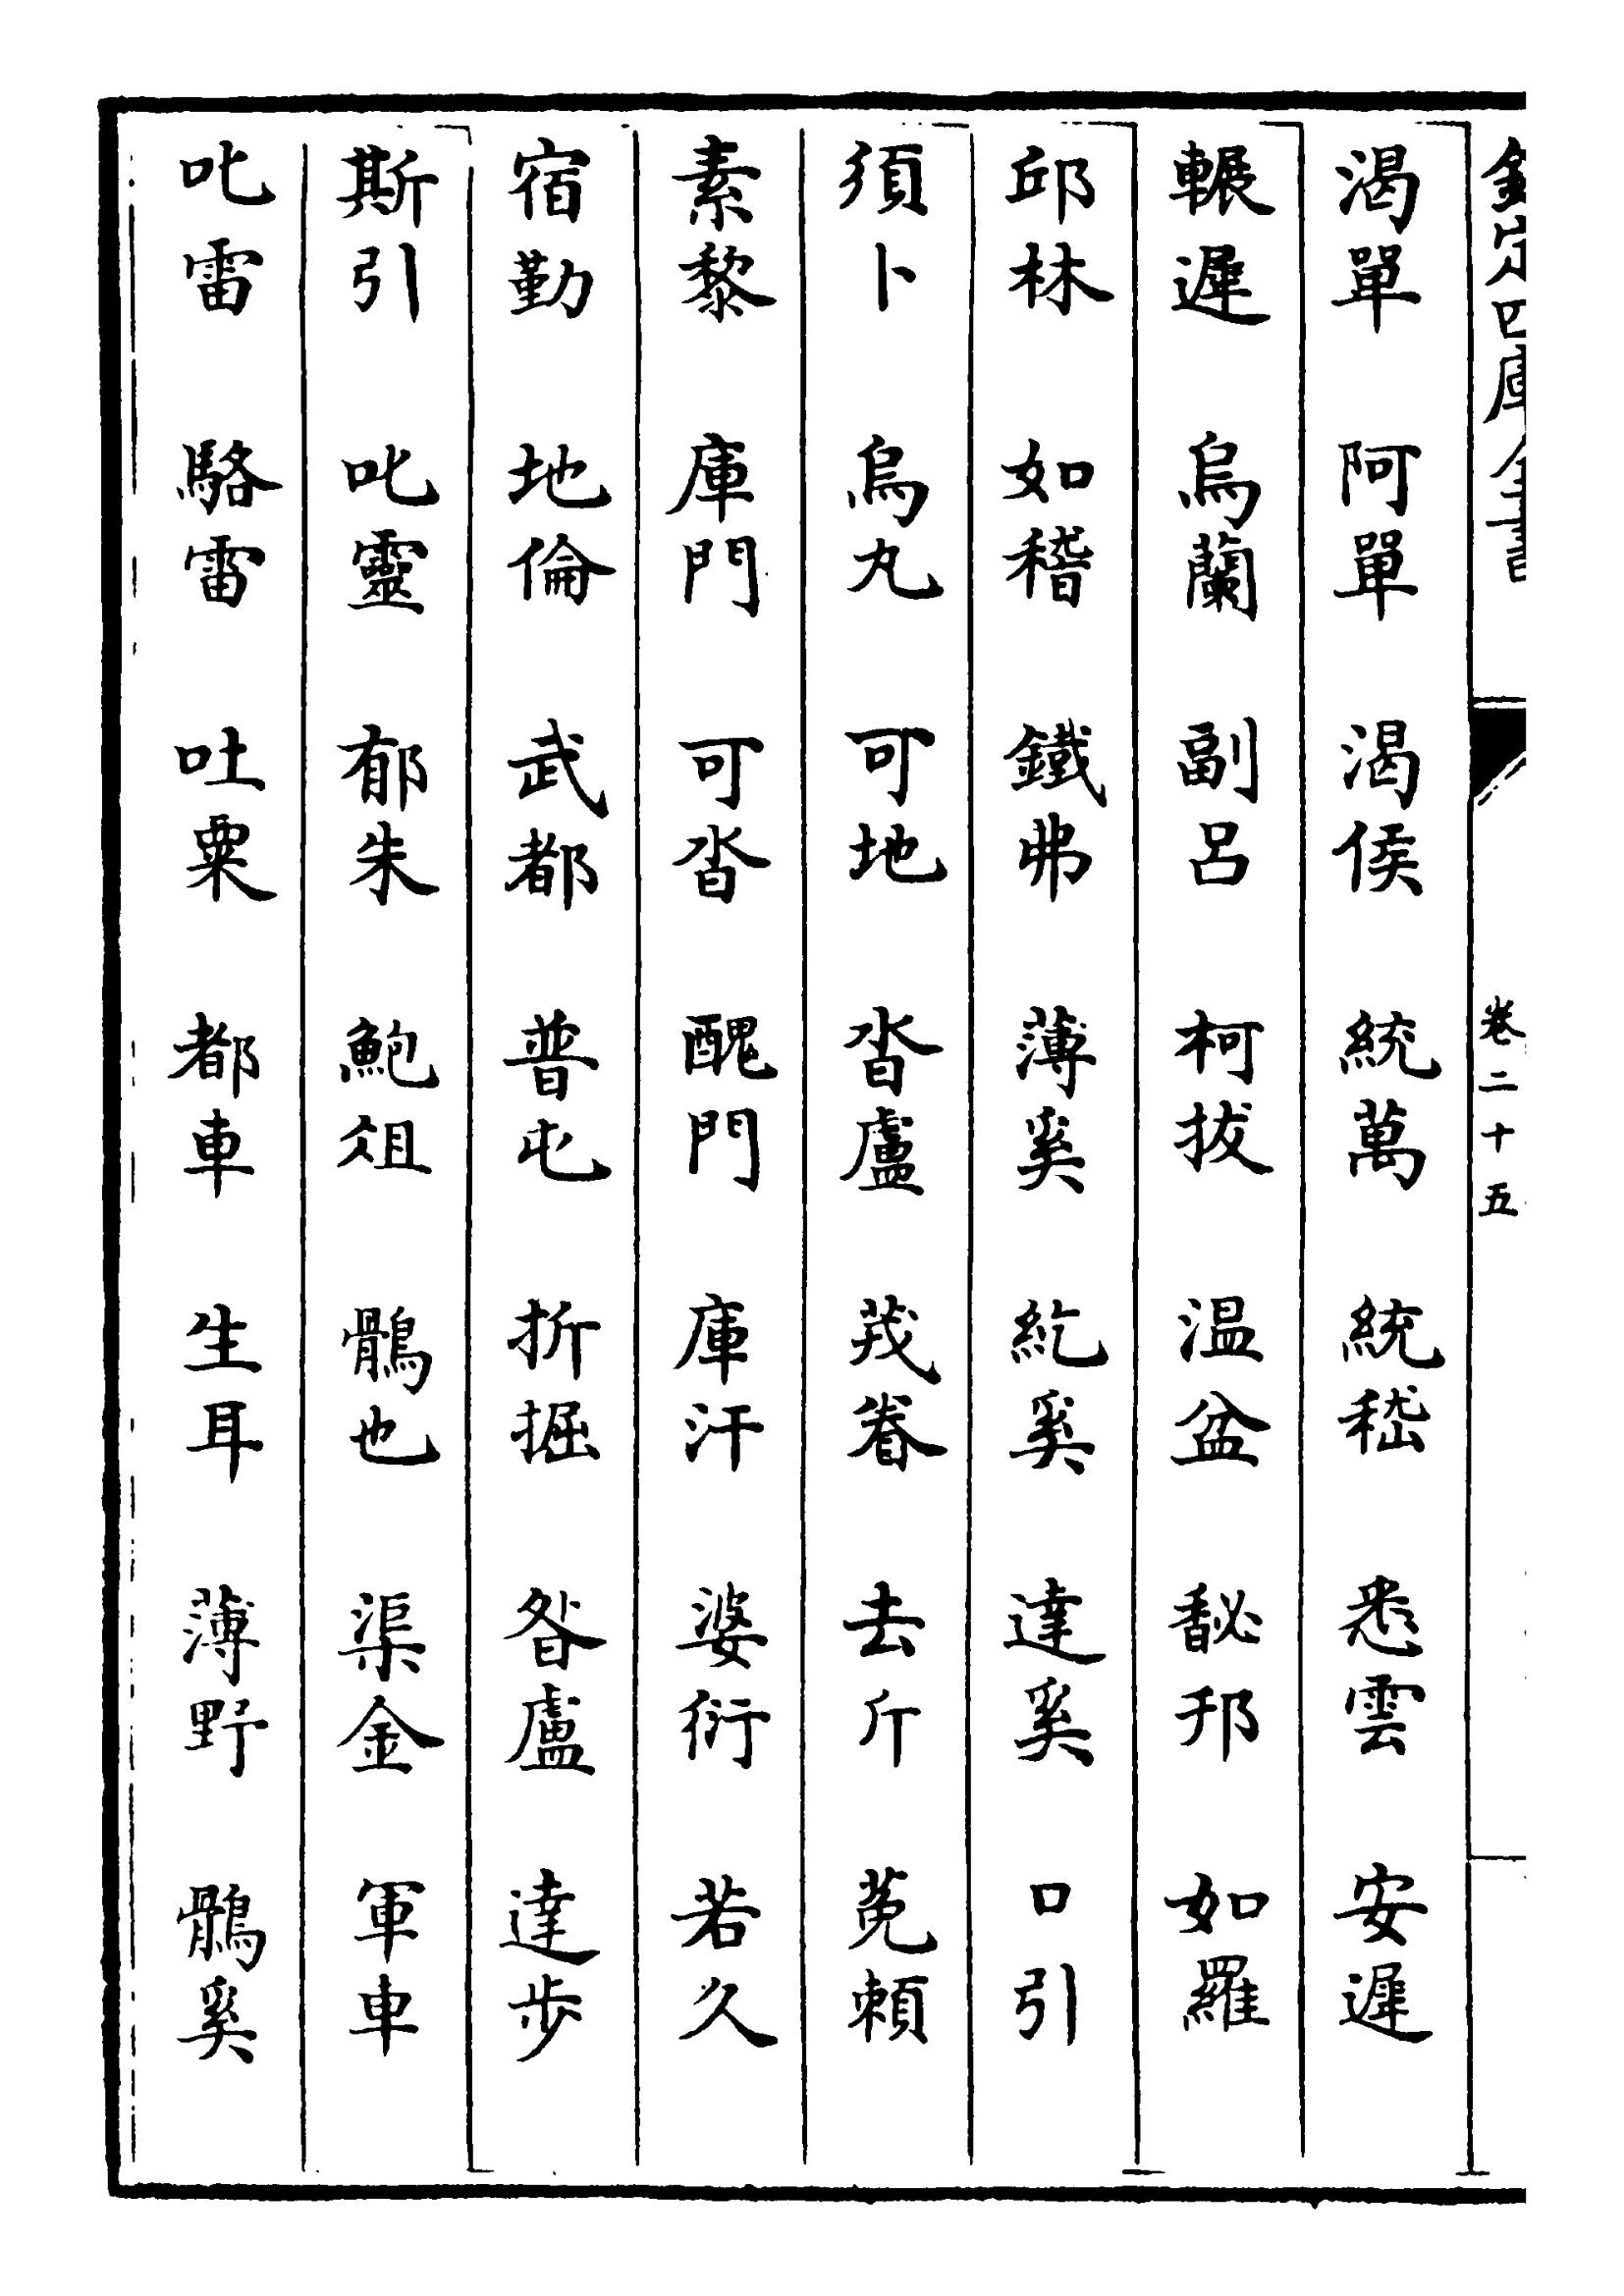 欽定四庫全書
卷二十五
渴單 阿單 渴侯 統萬 統嵇 悉雲 安遲
輾遲 烏蘭 副呂 柯拔 温盆 馝邘 如羅
邱林 如稽 鐵弗 薄奚 紇奚 達奚 口引
須卜 烏丸 可地 沓盧 茂眷 去斤 莬頼
素黎 庫門 可沓 醜門 庫汗 婆衍 若久
宿勤 地倫 武都 普屯 折掘 明盧 達歩
斯引 叱靈 郁朱 鮑俎 鶻也 渠金 軍車
叱雷 駱雷 吐粟 都車 生耳 薄野 鶻奚